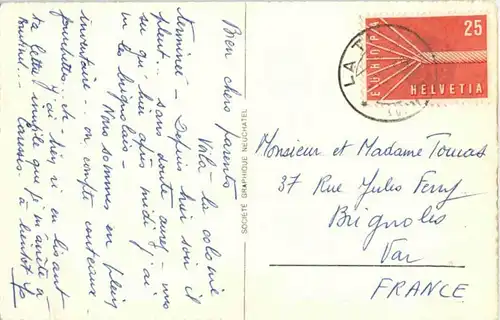 Bien chers parents
Voilà la colonie
terminée - Depuis hier soir il
pleut.. sans doute aurez-vous
su qu'hier après midi j'ai
vu le brignolais -
Nous sommes en plein
inventaire - on compte couteaux -
fourchettes.. etc -
J'ai bien ri en lisant
ta lettre. inutile que je m'arrête à
Caresses. à bientôt
SOCIÉTÉ GRAPHIQUE NEUCHATEL
LA
EUROPA
25
HELVETIA
Monsieur et Madame Toucas
37 Rue Jules Ferry
Brignoles
Var
FRANCE